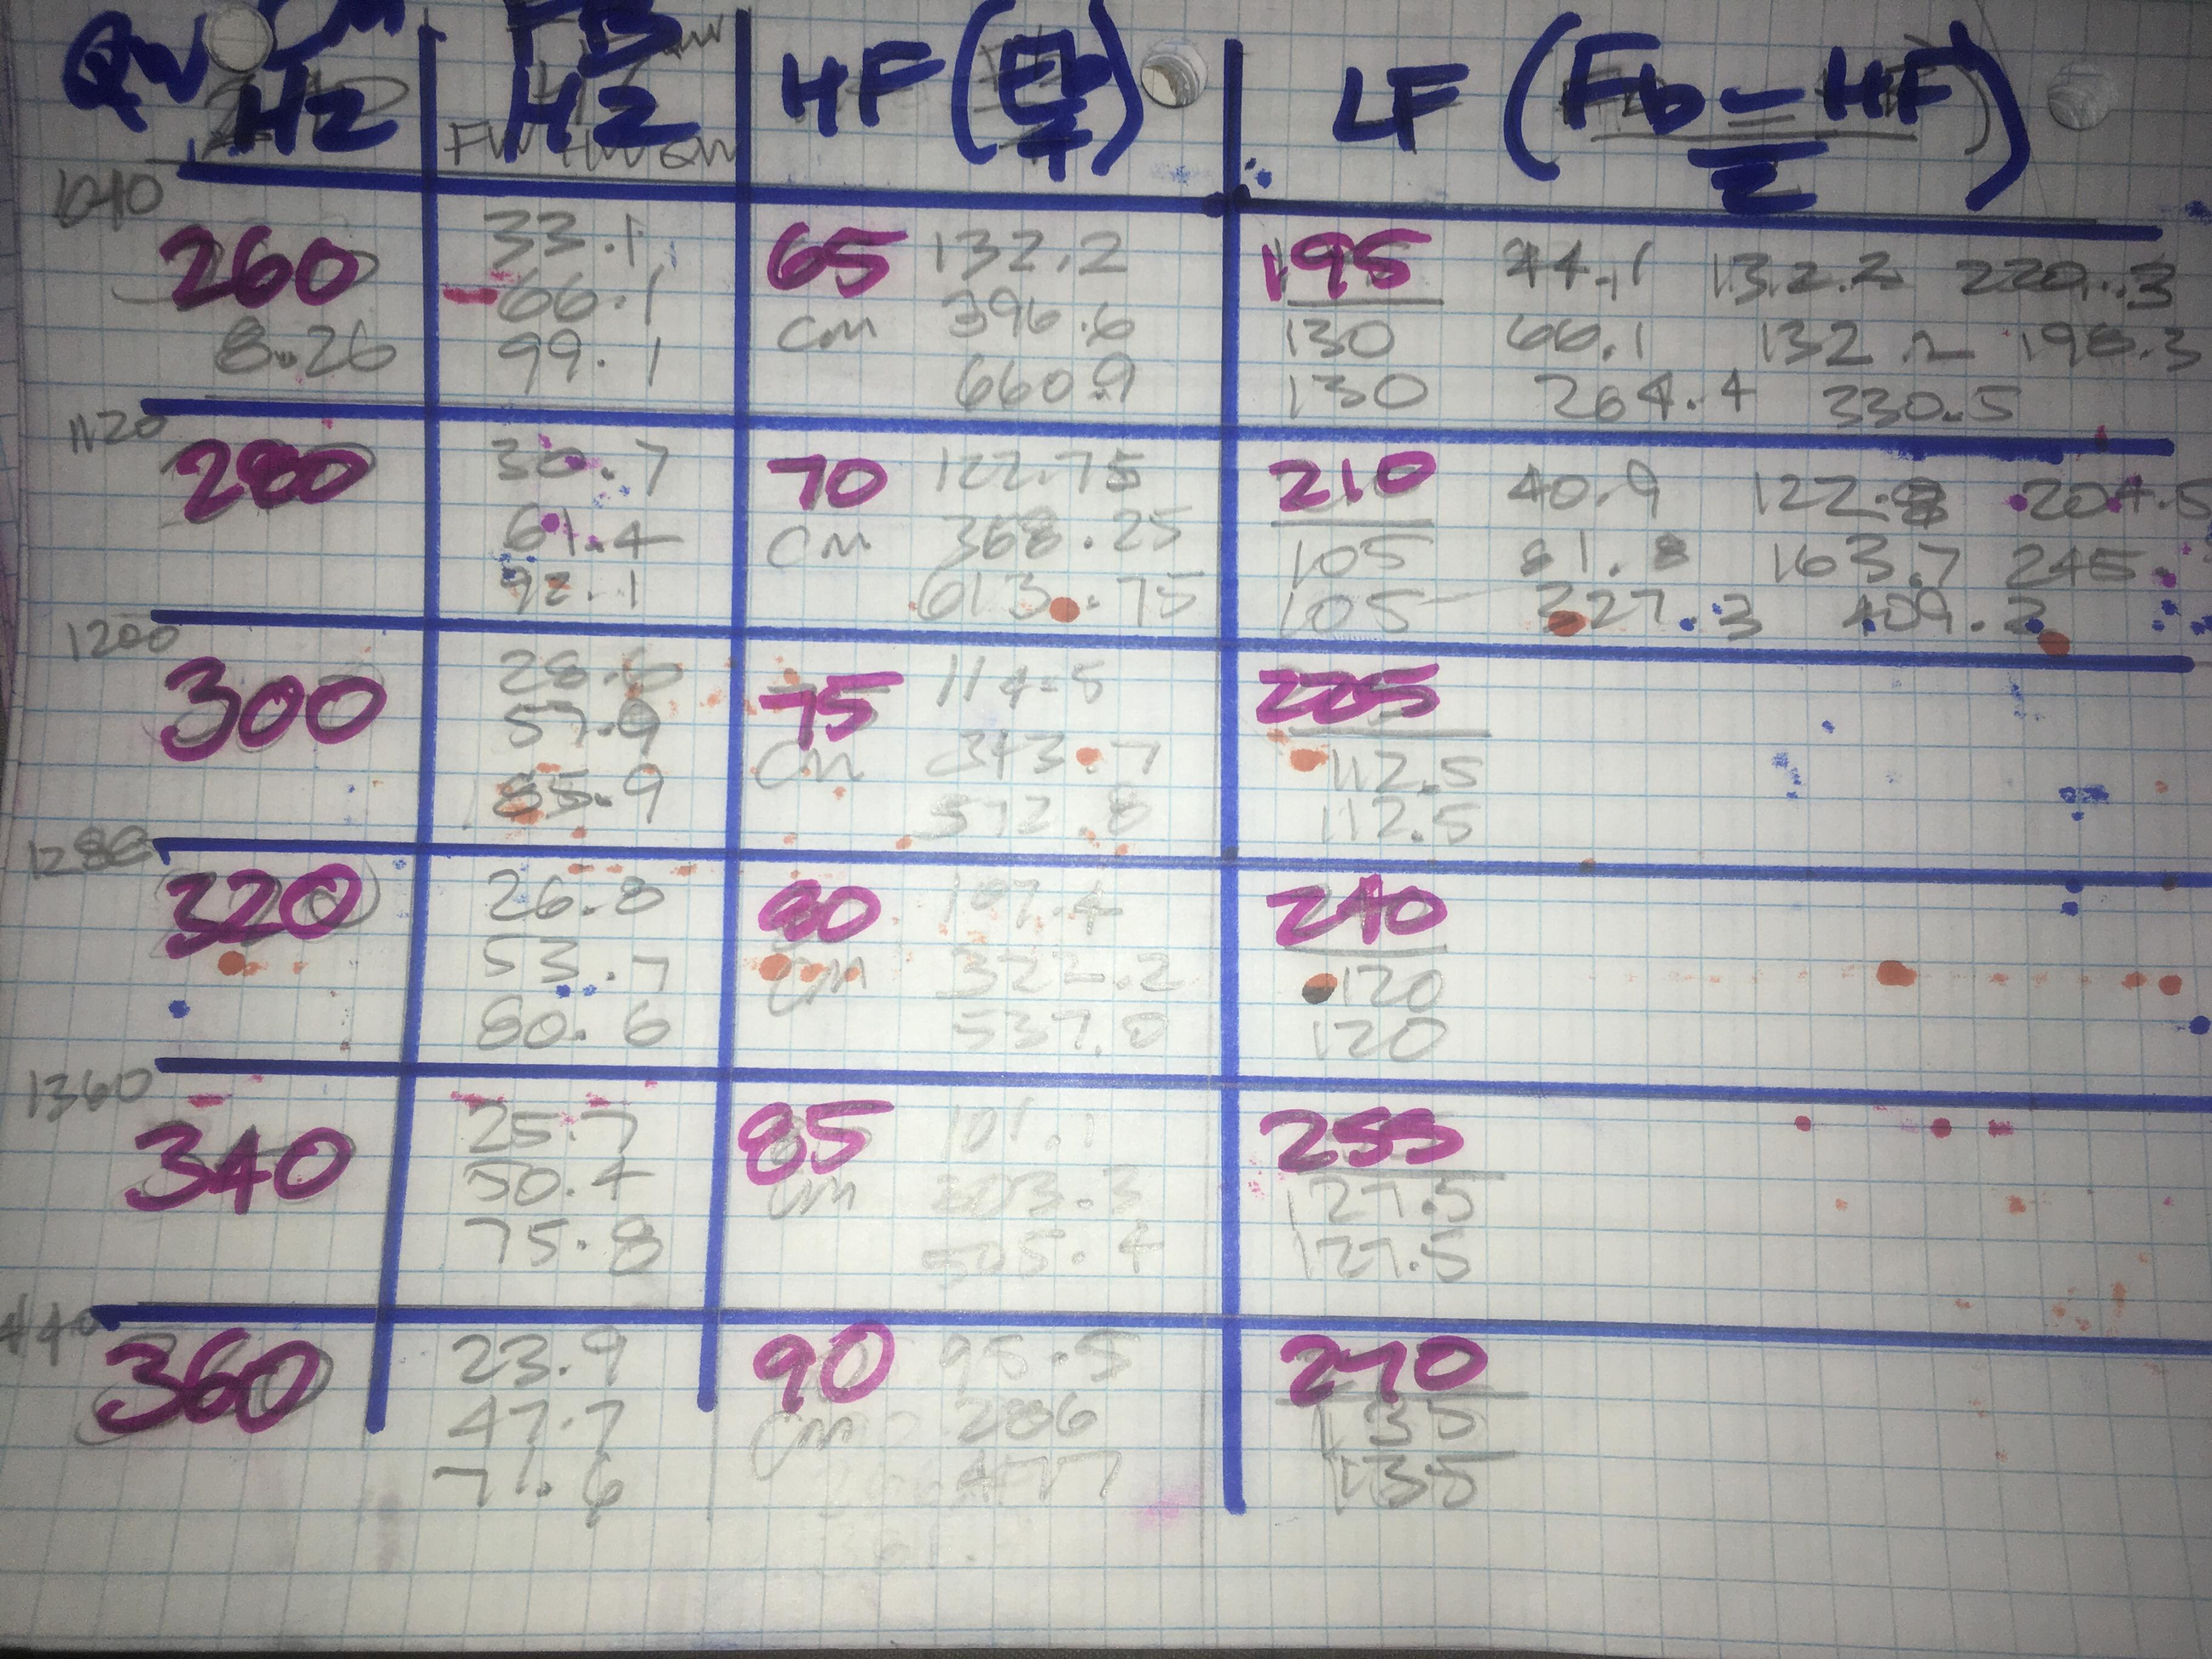 QW CM FB
Hz Hz HF (Fb/4) LF (Fb - HF / 2)
FW HW QW
1040
260 33.1 65 132.2 195 44.1 132.2 220.3
66.1 cm 396.6 130 66.1 132.2 198.3
8.26 99.1 660.9 130 264.4 330.5
1120
280 30.7 70 122.75 210 40.9 122.8 204.5
61.4 cm 368.25 105 81.8 163.7 245.
92.1 613.75 105 327.3 409.2
1200
300 28.6 75 114.5 225
57.9 cm 343.7 112.5
85.9 572.8 112.5
1280
320 26.8 80 107.4 240
53.7 cm 322.2 120
80.6 537.0 120
1360
340 25.7 85 101.1 255
50.4 cm 303.3 127.5
75.8 505.4 127.5
1440
360 23.9 90 95.5 270
47.7 cm 286 135
71.6 477 135